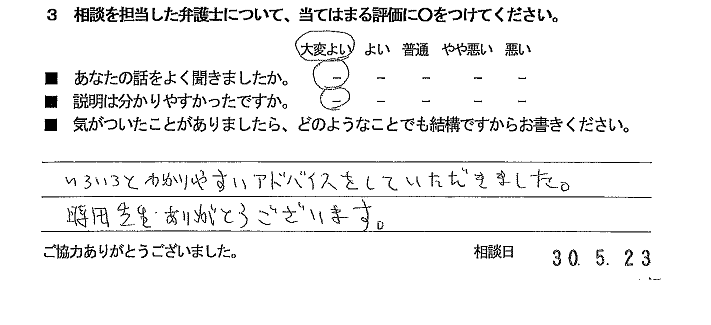 3 相談を担当した弁護士について、当てはまる評価に○をつけてください。
大変よい よい 普通 やや悪い 悪い
■ あなたの話をよく聞きましたか。 － － － － －
■ 説明は分かりやすかったですか。 － － － － －
■ 気がついたことがありましたら、どのようなことでも結構ですからお書きください。
いろいろとわかりやすいアドバイスをしていただきました。
時田先生ありがとうございます。
ご協力ありがとうございました。 相談日 30. 5. 23